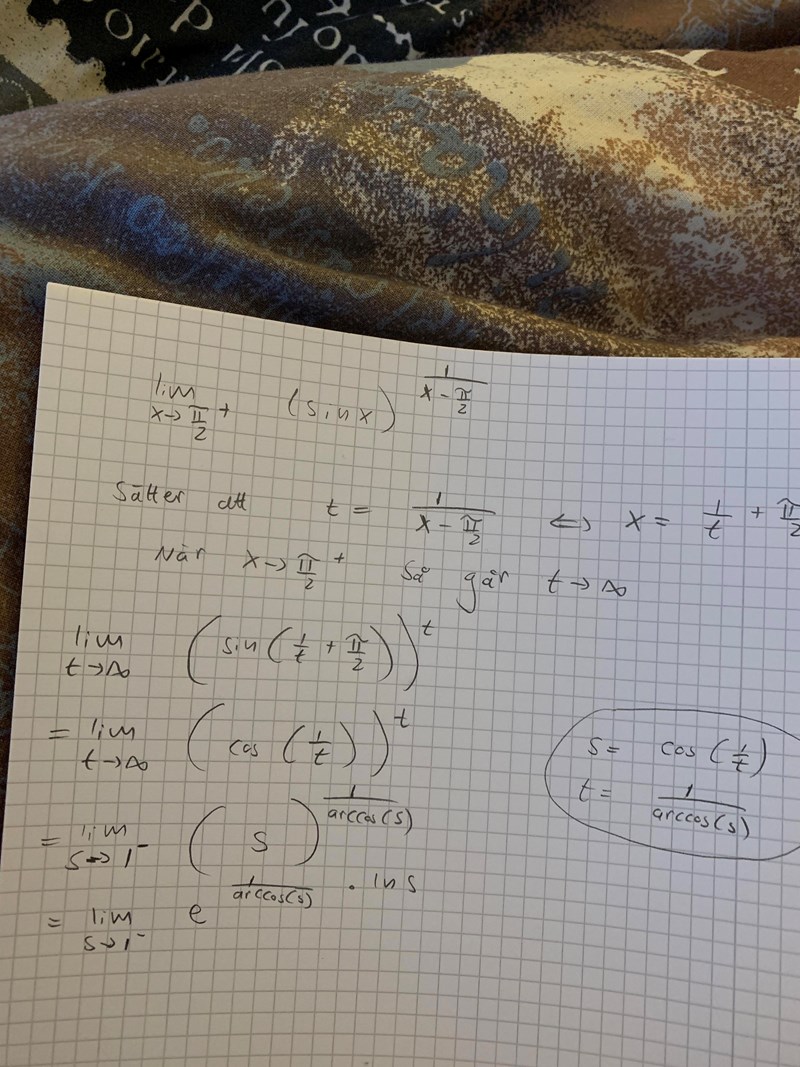 lim x→π/2+ (sin x)^(1/(x - π/2))
Sätter att t = 1/(x - π/2) ⇔ x = 1/t + π/2
När x→π/2+ så går t→∞
lim t→∞ (sin(1/t + π/2))^t
= lim t→∞ (cos(1/t))^t
s = cos(1/t)
t = 1/arccos(s)
= lim s→1⁻ (s)^(1/arccos(s))
= lim s→1⁻ e^(1/arccos(s) · ln s)